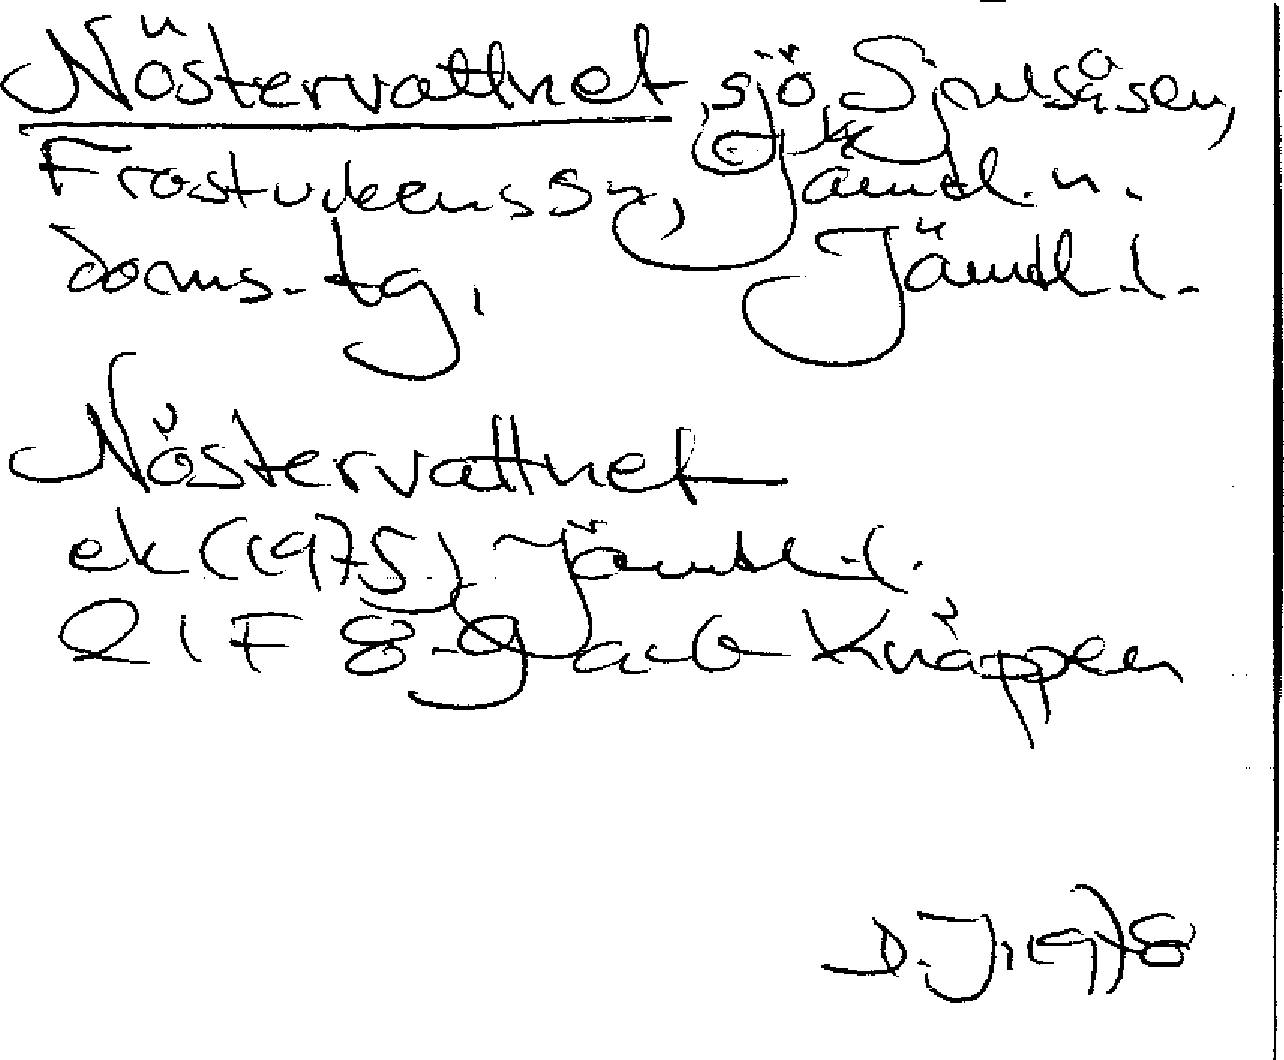 Nöstervattnet, sjö, Sjoulsåsen,
Frostvikens sn, Jämtl. n.
doms. tg, Jämtl. l.
Nöstervattnet
ek (1975) Jämtl. l.
21F 8-9 a-b Knäppen
D. J. 1978